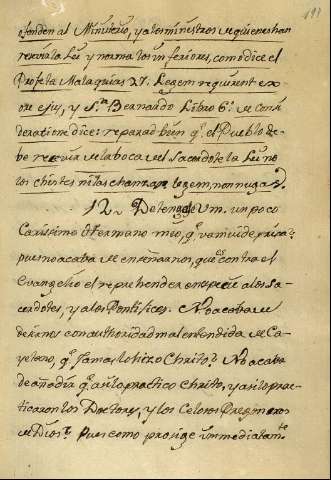 ofenden al Ministerio, y a los ministros de quienes han
recivir la Ley y norma los inferiores, como dice el
Profeta Malaquias 2. v. 7. Legem requirent ex
ore ejus, y Sn. Bernardo Libro 6º. de Consi
deratione dice: reparad bien qe. el Pueblo de-
be recivir de la boca del Sacerdote la Ley no
los chistes ni las chanzas, legem, non nugas.
12. Detengase Vm. un poco
Carissimo Hermano mio, qe. va mui de prisa:
pues no acaba de enseñarnos, que es contra el
Evangelio el reprehender en especial a los Sa-
cerdotes, y a los Pontifices. No acaba de
decirnos con authoridad mal entendida de Ca-
yetano, qe. jamas lo hizo Christo. No acaba
de añadir qe. asi lo practicò Christo, y asi lo prac-
ticaron los Doctores, y los Celosos Predicadores
de Dios. Pues como prosigue immediatamte.